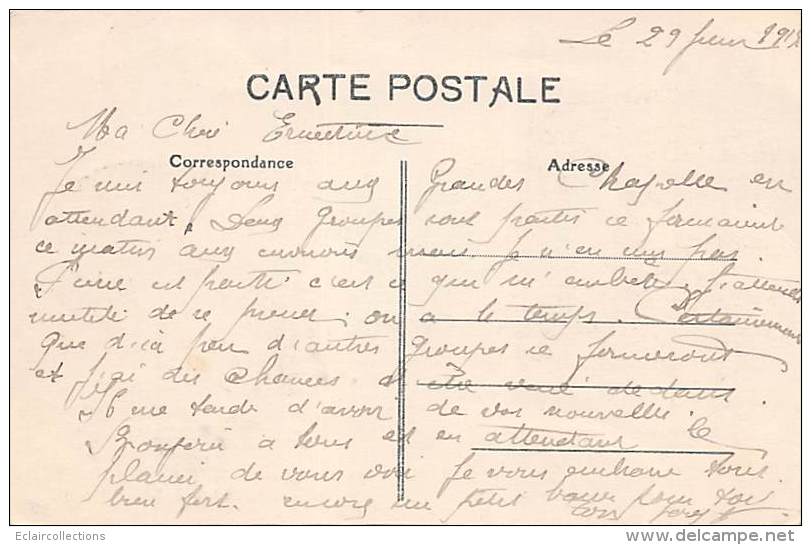 Le 29 1915
CARTE POSTALE
Ma Chère Ernestine
Correspondance Adresse
Je suis toujours aux Grandes Chapelle en
attendant. Deux groupes sont partis se formaient
ce matin aux environs mais je n'en suis pas.
J'une est parti c'est ce qui m'embête, j'attends
inutile de se presser, on a le temps. Certainement
que d'ici peu d'autres groupes se formeront
et j'ai des chances d'être versé dedans.
Il me tarde d'avoir de vos nouvelles.
Bonjour à tous et en attendant le
plaisir de vous voir je vous embrasse tous
bien fort. encore un petit pour toi
ton
Eclaircollections
www.delcampe.net